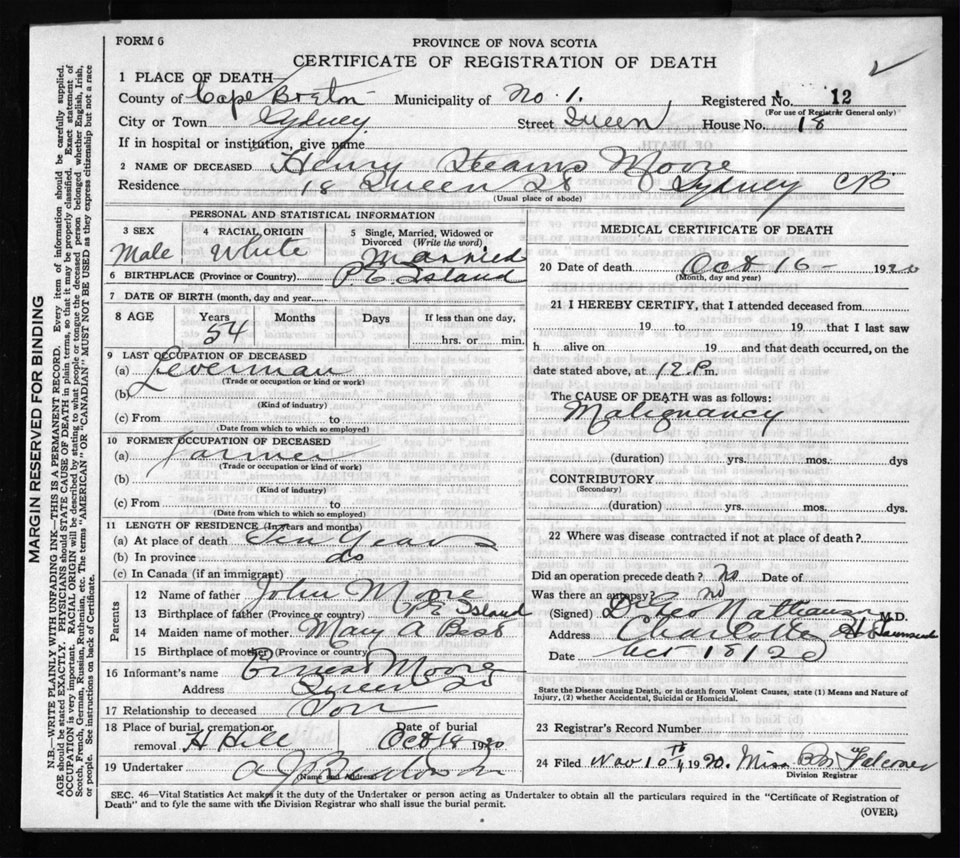 FORM 6
PROVINCE OF NOVA SCOTIA
CERTIFICATE OF REGISTRATION OF DEATH
1 PLACE OF DEATH—
County of Cape Breton Municipality of No 1. Registered No. 12
(For use of Registrar General only)
City or Town Sydney Street Queen House No. 18
If in hospital or institution, give name
2 NAME OF DECEASED Henry Stearns Moore
Residence 18 Queen St Sydney CB
(Usual place of abode)
PERSONAL AND STATISTICAL INFORMATION
3 SEX Male
4 RACIAL ORIGIN White
5 Single, Married, Widowed or Divorced (Write the word) Married
6 BIRTHPLACE (Province or Country) P.E. Island
7 DATE OF BIRTH (month, day and year)
8 AGE Years 54 Months Days If less than one day, hrs. or min.
9 LAST OCCUPATION OF DECEASED
(a) Leverman
(Trade or occupation or kind or work)
(b)
(Kind of industry)
(c) From to
(Date from which to which so employed)
10 FORMER OCCUPATION OF DECEASED
(a) Farmer
(Trade or occupation or kind of work)
(b)
(Kind of industry)
(c) From to
(Date from which to which so employed)
11 LENGTH OF RESIDENCE (In years and months)
(a) At place of death Ten Years
(b) In province do
(c) In Canada (if an immigrant)
Parents
12 Name of father John Moore
13 Birthplace of father (Province or country) P E Island
14 Maiden name of mother Mary A Best
15 Birthplace of mother (Province or country)
16 Informant's name Ernest Moore
Address Queen St
17 Relationship to deceased Son
18 Place of burial, cremation or removal H Hill Date of burial Oct 18 1920
19 Undertaker A J
(Name and Address)
MEDICAL CERTIFICATE OF DEATH
20 Date of death Oct 16 – 1920
(Month, day and year)
21 I HEREBY CERTIFY, that I attended deceased from
19 to 19 that I last saw
h alive on 19 and that death occurred, on the
date stated above, at 12 P.m.
The CAUSE OF DEATH was as follows:
Malignancy
(duration) yrs. mos. dys
CONTRIBUTORY
(Secondary)
(duration) yrs. mos. dys.
22 Where was disease contracted if not at place of death?
Did an operation precede death? no Date of
Was there an autopsy? no
(Signed) Dr M.D.
Address Charlotte
Date Oct 18/20
State the Disease causing Death, or in death from Violent Causes, state (1) Means and Nature of Injury, (2) whether Accidental, Suicidal or Homicidal.
23 Registrar's Record Number
24 Filed Nov 10th 1920. Miss
Division Registrar
SEC. 46—Vital Statistics Act makes it the duty of the Undertaker or person acting as Undertaker to obtain all the particulars required in the "Certificate of Registration of
Death" and to fyle the same with the Division Registrar who shall issue the burial permit.
(OVER)
MARGIN RESERVED FOR BINDING
N.B.—WRITE PLAINLY WITH UNFADING INK—THIS IS A PERMANENT RECORD. Every item of information should be carefully supplied.
AGE should be stated EXACTLY. PHYSICIANS should STATE CAUSE OF DEATH in plain terms, so that it may be properly classified. Exact statement of
OCCUPATION is very important. RACIAL ORIGIN will be described by stating to what people or tongue the deceased person belonged whether English, Irish,
Scotch, French, German, Russian, Ruthenian, etc. The terms "AMERICAN" OR "CANADIAN" MUST NOT BE USED as they express citizenship but not a race
or people. See instructions on back of Certificate.